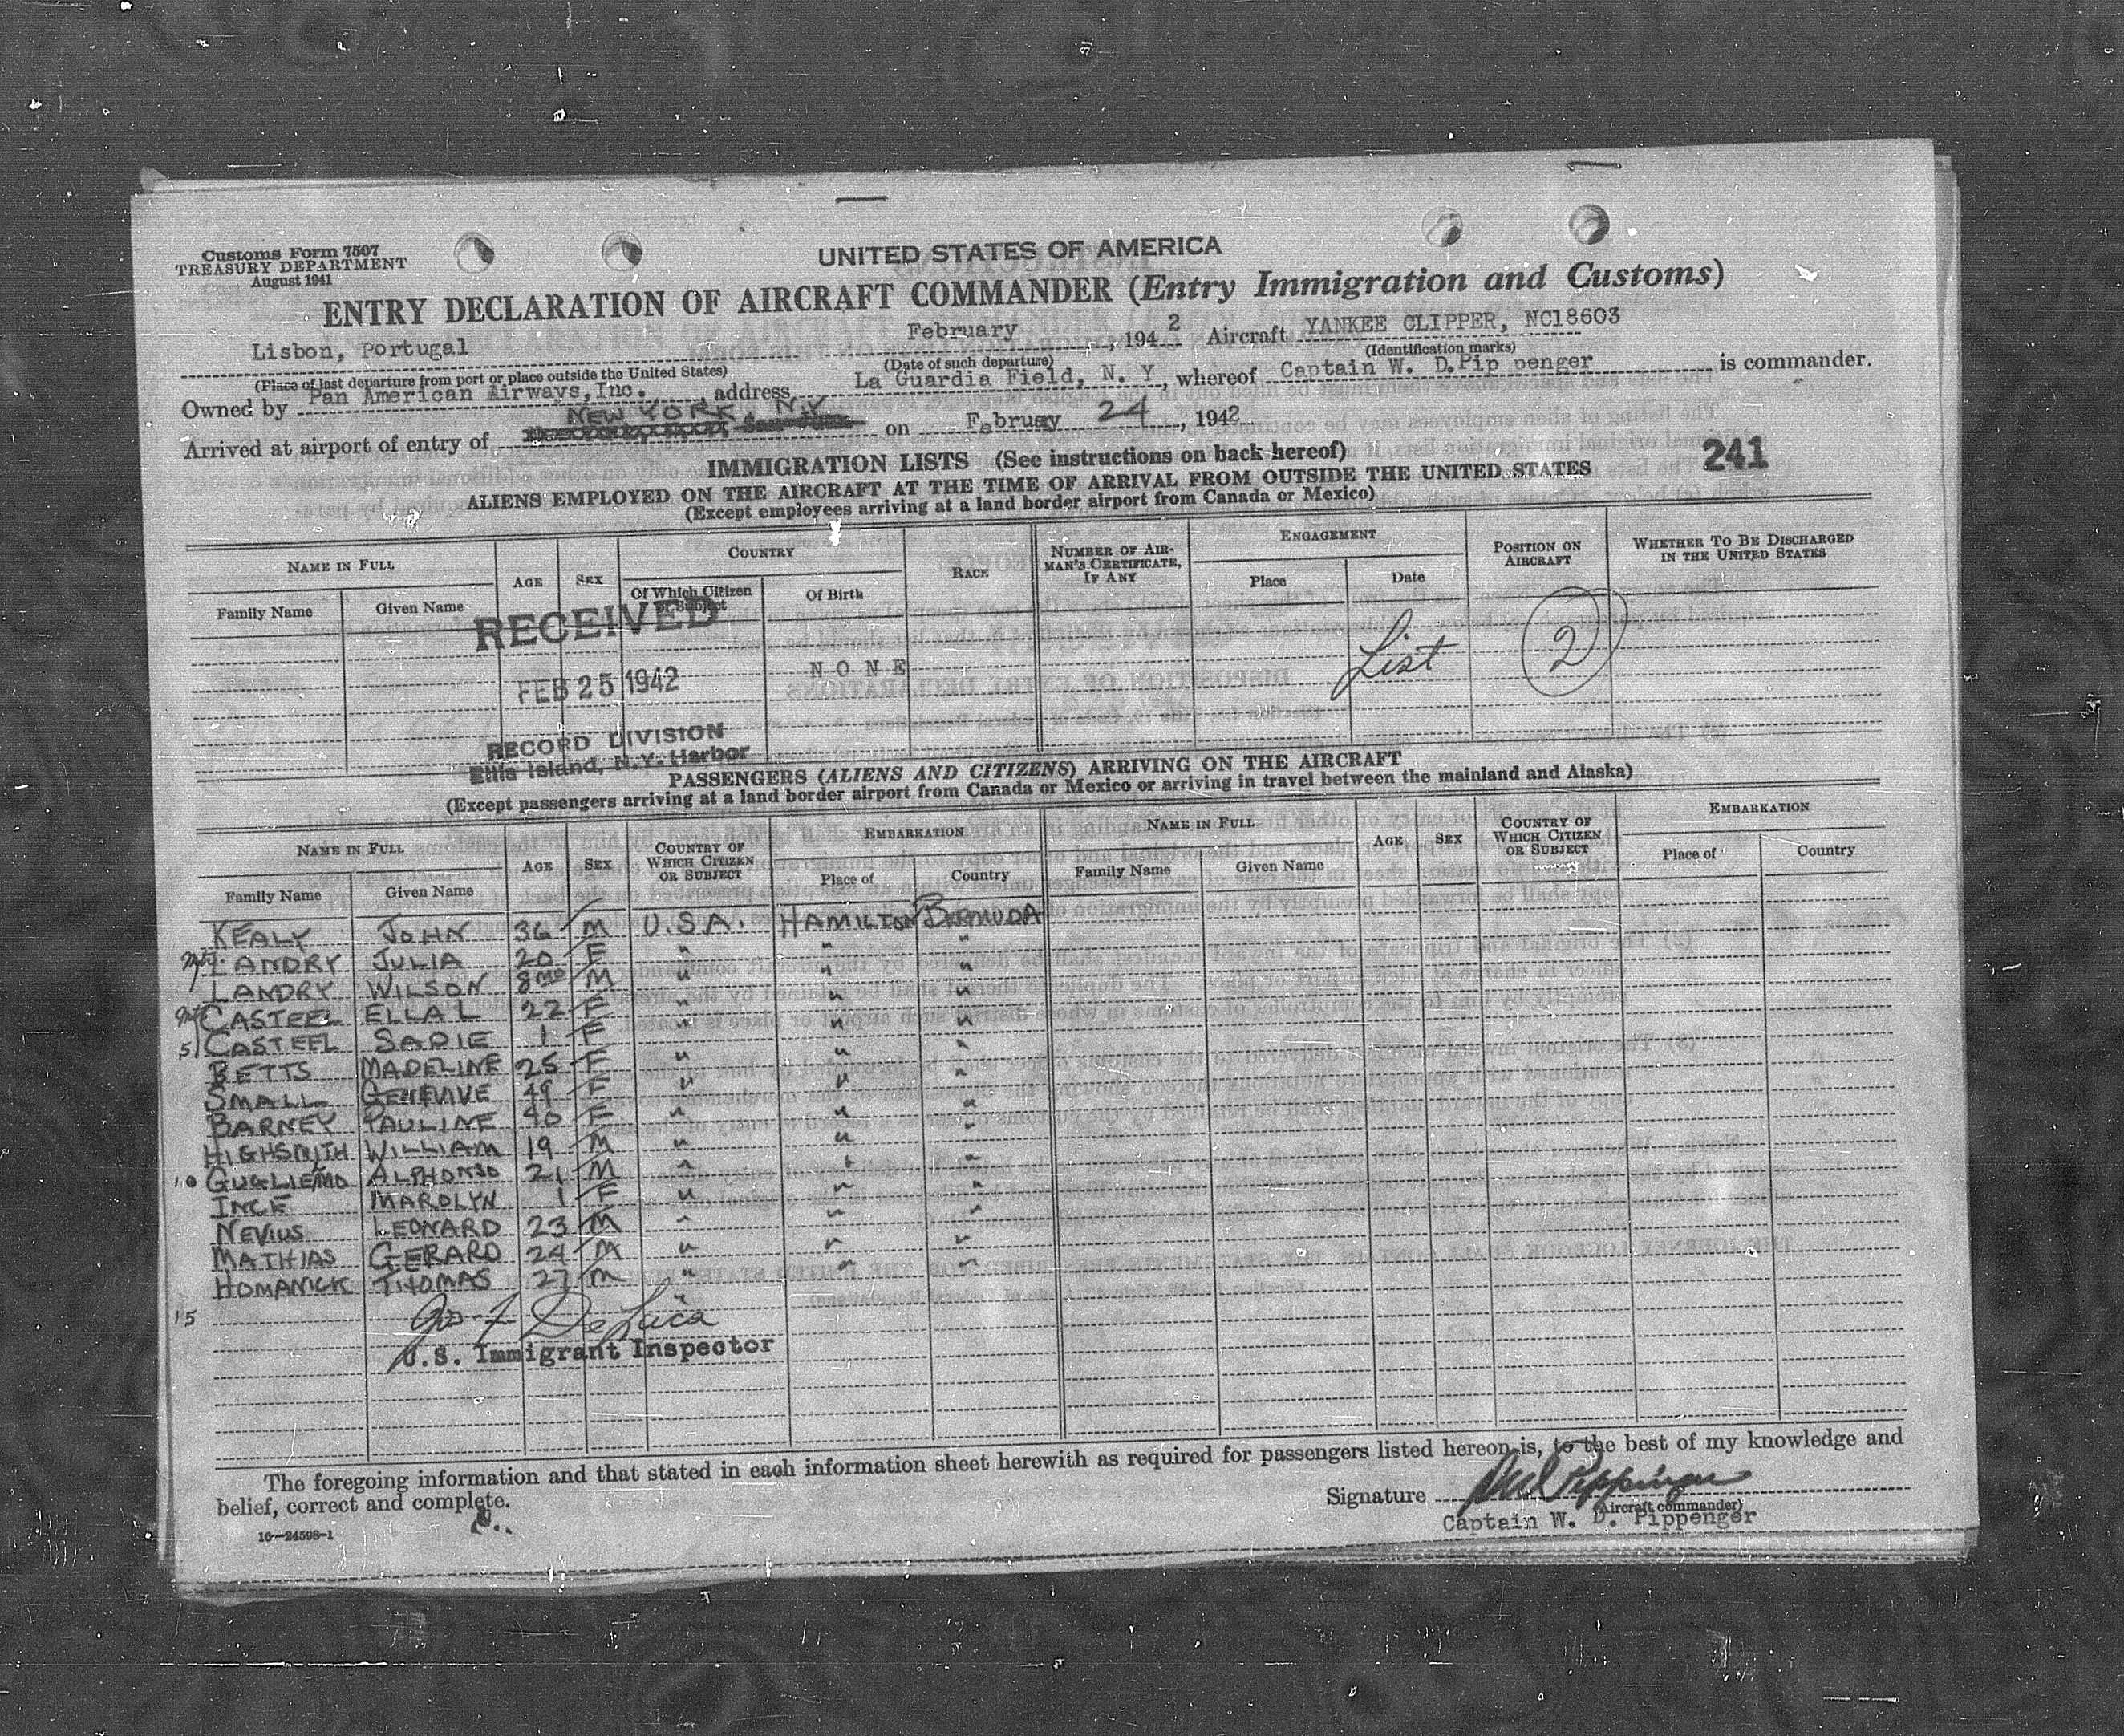 Customs Form 7507
TREASURY DEPARTMENT
August 1941
UNITED STATES OF AMERICA
ENTRY DECLARATION OF AIRCRAFT COMMANDER (Entry Immigration and Customs)
Lisbon, Portugal February , 1942 Aircraft YANKEE CLIPPER, NC18603
(Place of last departure from port or place outside the United States) (Date of such departure) (Identification marks)
Owned by Pan American Airways, Inc. address La Guardia Field, N. Y , whereof Captain W. D. Pip penger is commander.
Arrived at airport of entry of NEW YORK N.Y on February 24, 1942
241
IMMIGRATION LISTS (See instructions on back hereof)
ALIENS EMPLOYED ON THE AIRCRAFT AT THE TIME OF ARRIVAL FROM OUTSIDE THE UNITED STATES
(Except employees arriving at a land border airport from Canada or Mexico)
NAME IN FULL AGE SEX COUNTRY RACE NUMBER OF AIRMAN'S CERTIFICATE, IF ANY ENGAGEMENT POSITION ON AIRCRAFT WHETHER TO BE DISCHARGED IN THE UNITED STATES
Family Name Given Name Of Which Citizen or Subject Of Birth Place Date
RECEIVED
NONE List 2
FEB 25 1942
RECORD DIVISION
Ellis Island, N.Y. Harbor
PASSENGERS (ALIENS AND CITIZENS) ARRIVING ON THE AIRCRAFT
(Except passengers arriving at a land border airport from Canada or Mexico or arriving in travel between the mainland and Alaska)
NAME IN FULL AGE SEX COUNTRY OF WHICH CITIZEN OR SUBJECT EMBARKATION NAME IN FULL AGE SEX COUNTRY OF WHICH CITIZEN OR SUBJECT EMBARKATION
Family Name Given Name Place of Country Family Name Given Name Place of Country
KEALY JOHN 36 M U.S.A. HAMILTON BERMUDA
LANDRY JULIA 20 F " " "
LANDRY WILSON 8 mo M " " "
CASTEEL ELLA L 22 F " " "
5 CASTEEL SADIE 1 F " " "
BETTS MADELINE 25 F " " "
SMALL GENEVIVE 49 F " " "
BARNEY PAULINE 40 F " " "
HIGHSMITH WILLIAM 19 M " " "
10 GUGLIELMO ALPHONSO 21 M " " "
INCE MAROLYN 1 F " " "
NEVIUS LEONARD 23 M " " "
MATHIAS GERARD 24 M " " "
HOMANICK THOMAS 27 M " " "
15 Jos. F. DeLuca "
U.S. Immigrant Inspector
The foregoing information and that stated in each information sheet herewith as required for passengers listed hereon is, to the best of my knowledge and
belief, correct and complete.
Signature Pippenger
(Aircraft commander)
Captain W. D. Pippenger
16—24598-1